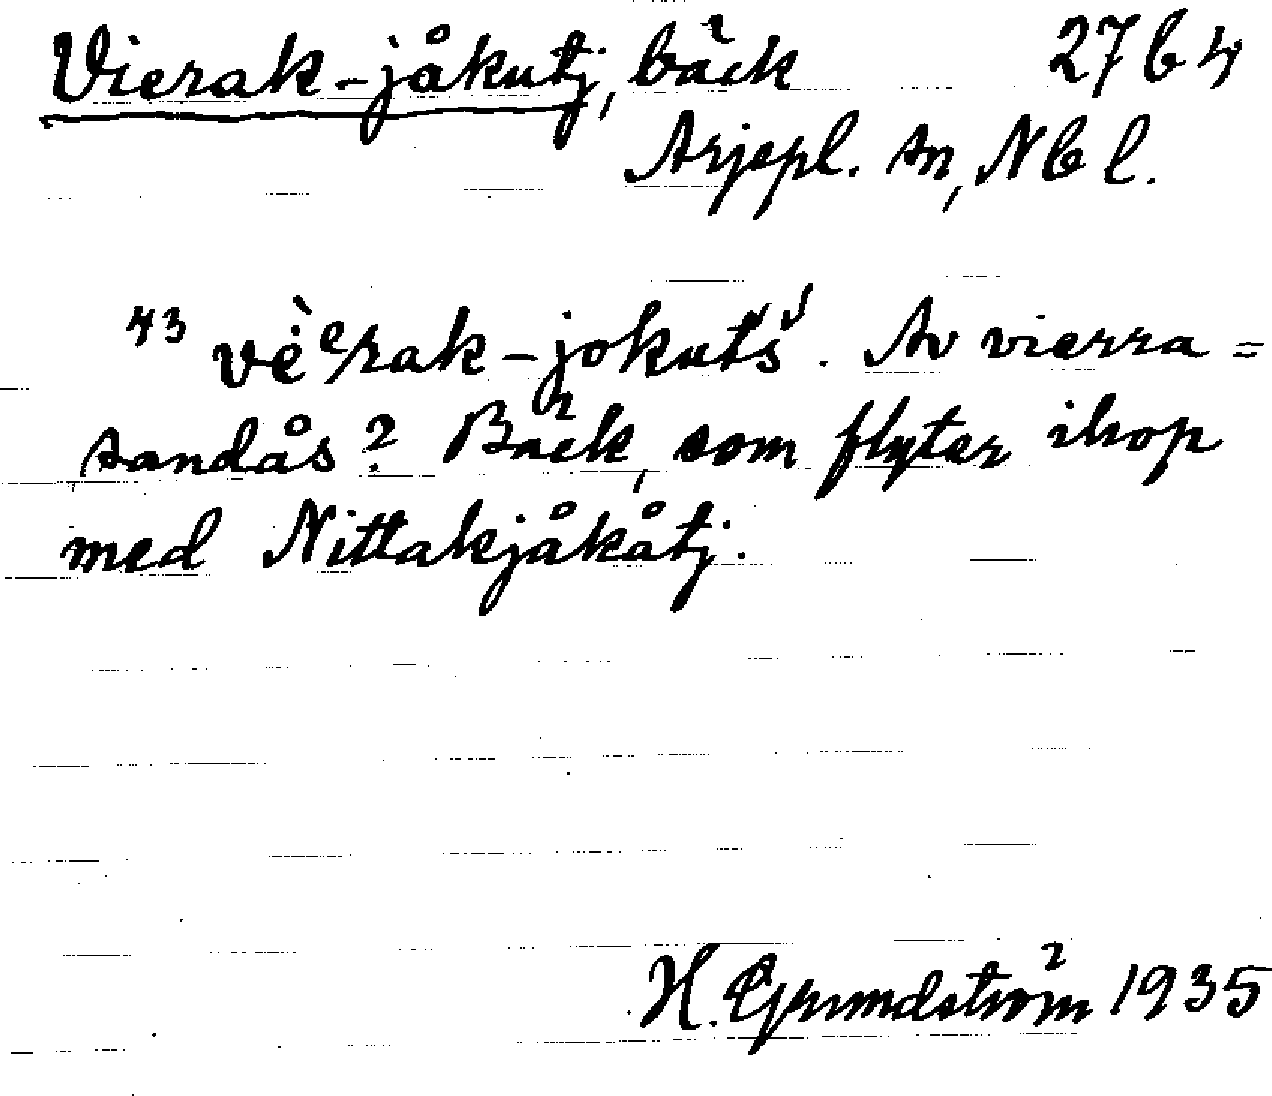 Vierak-jåkutj, bäck 27 b 4
Arjepl. sn, Nb l.
43 vẹ̀ᵉrak-jokutś. Av vierra =
sandås? Bäck, som flyter ihop
med Nittakjåkåtj.
H. Grundström 1935